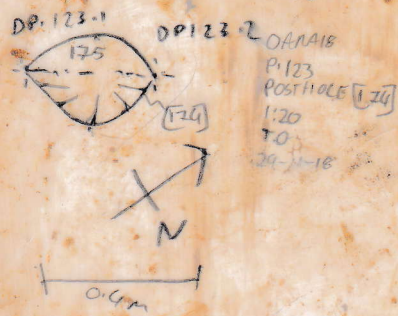 DP.123.1
DP123.2
175
[174]
OANA18
P.123
POSTHOLE [174]
1:20
T.O
N
0.4m